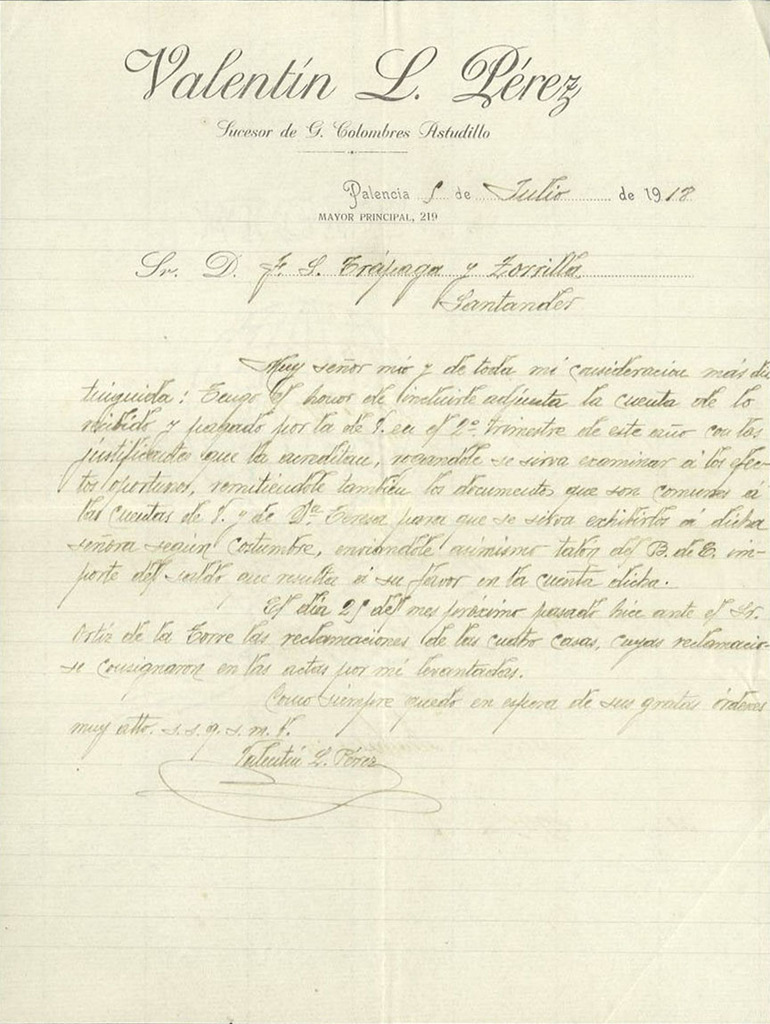 Valentín L. Pérez
Sucesor de G. Colombres Astudillo
Palencia 5 de Julio de 1918
MAYOR PRINCIPAL, 219
Sr. D. F. S. Trápaga y Zorrilla
Santander
Muy señor mío y de toda mi consideración más dis
tinguida: Tengo el honor de incluirle adjunta la cuenta de lo
recibido y pagado por la de V. en el 2º trimestre de este año con los
justificantes que la acreditan, rogandole se sirva examinar á los efec-
tos oportunos, remitiendole también los documentos que son comunes á
las cuentas de V. y de Dª Teresa para que se sirva exhibirlos á dicha
señora según costumbre, enviandole asimismo talon del B. de E. im-
porte del saldo que resulta á su favor en la cuenta dicha.
El dia 25 del mes próximo pasado hice ante el Sr.
Ortiz de la Torre las reclamaciones de las cuatro casas, cuyas reclamacio-
se consignaron en las actas por mi levantadas.
Como siempre quedo en espera de sus gratas órdenes
muy atto. s. s. q. s. m. b.
Valentín L. Pérez